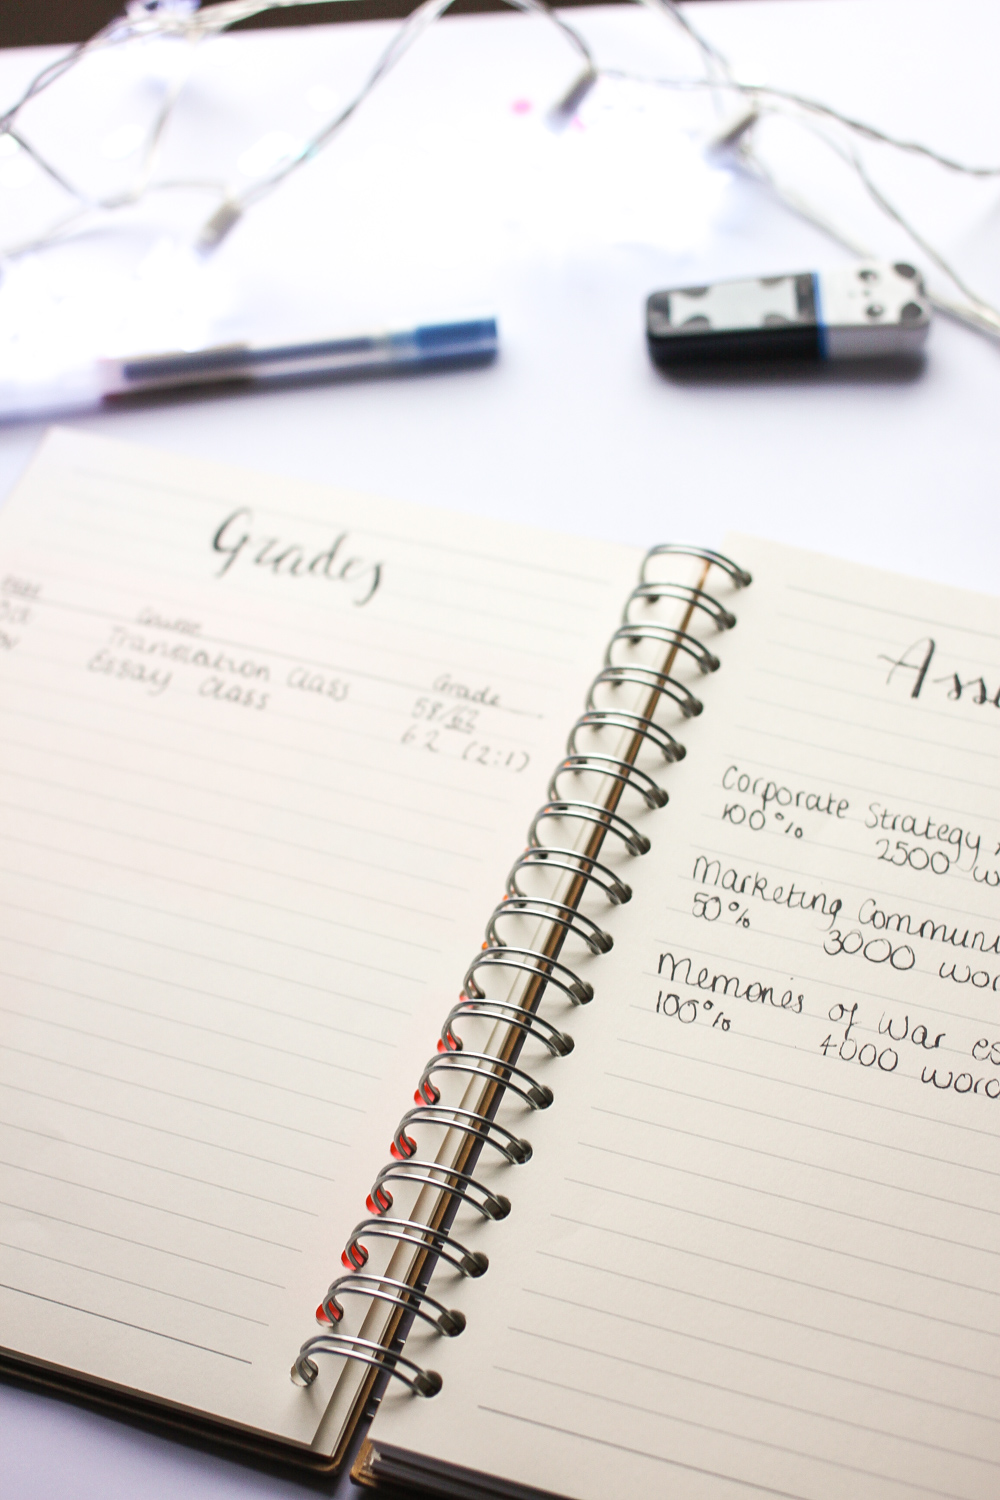 Grades
Course
Grade
Translation Class
58/62
Essay Class
62 (2:1)
Ass
Corporate Strategy
100% 2500 w
Marketing Communi
50% 3000 wor
Memories of War es
100% 4000 word